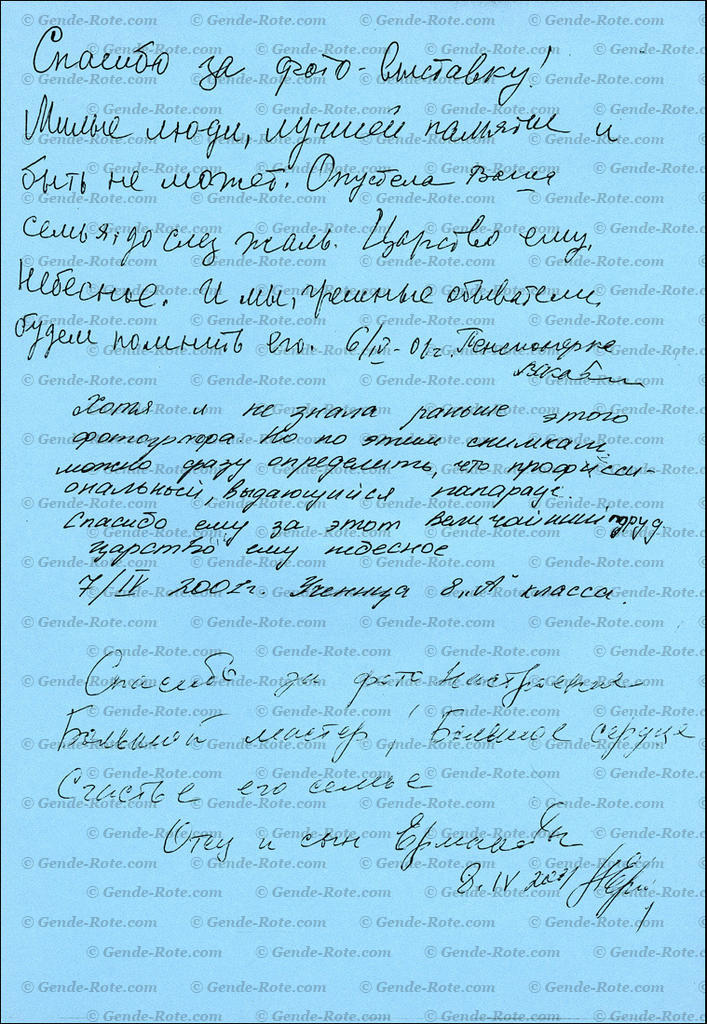 Спасибо за фото-выставку!
Милые люди, лучшей памяти и
быть не может. Опустела Ваша
семья, до слез жаль. Царство ему
Небесное. И мы, грешные обыватели,
будем помнить его. 6/IV-01г. Пенсионерка
Хотя я не знала раньше этого
фотографа. Но по этим снимкам
можно сразу определить, что професси-
ональный, выдающийся папарацци.
Спасибо ему за этот величайший труд
царство ему небесное
7/IV 2001г. Ученица 8 „А" класса.
Спасибо за фото настроение
Большой мастер, Большое сердце
Счастье его семье
Отец и сын
8. IV 2001
© Gende-Rote.com